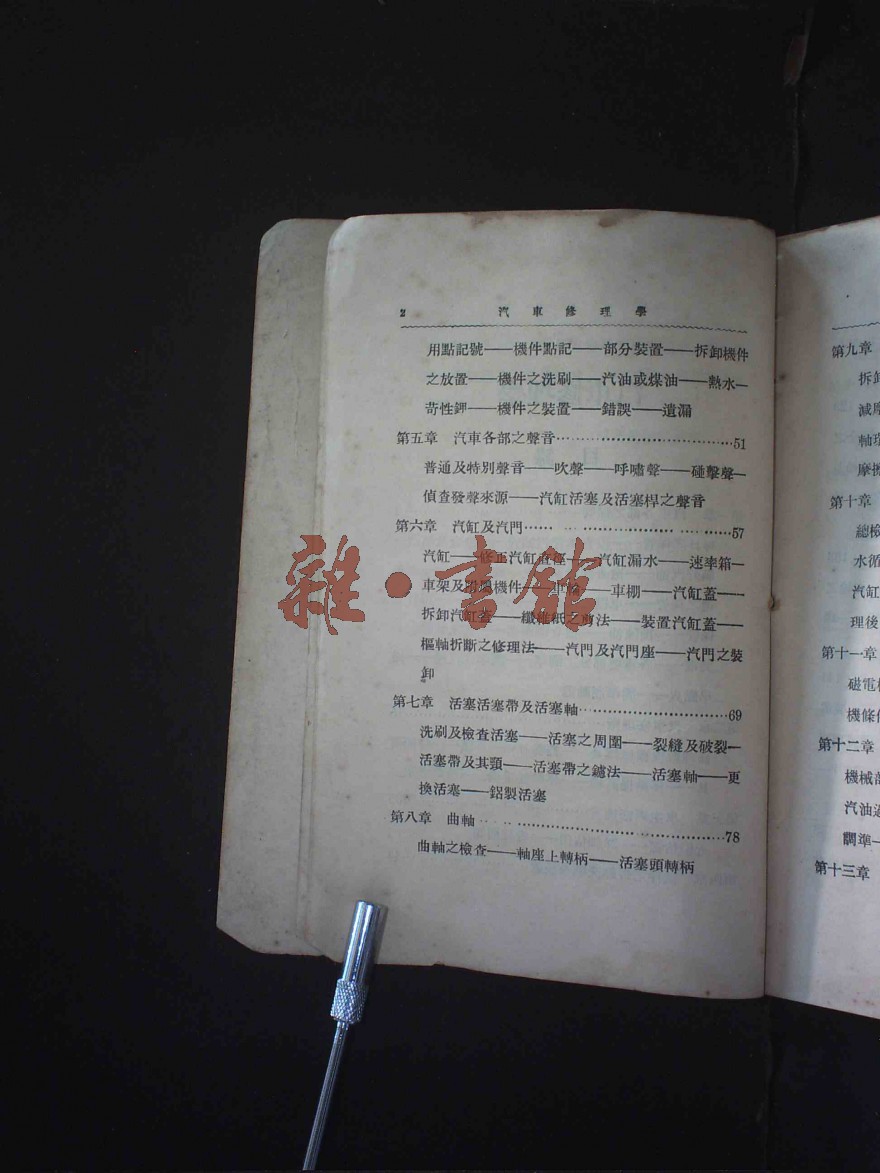 2 汽車修理學
用點記號——機件點記——部分裝置——拆卸機件
之放置——機件之洗刷——汽油或煤油——熱水—
苛性鉀——機件之裝置——錯誤——遺漏
第五章 汽車各部之聲音……………………………51
普通及特別聲音——吹聲——呼嘯聲——碰擊聲—
偵查發聲來源——汽缸活塞及活塞桿之聲音
第六章 汽缸及汽門……………………………57
汽缸——修正汽缸直徑——汽缸漏水——速率箱—
車架及附屬機件——車輪——車棚——汽缸蓋——
拆卸汽缸蓋——纖維紙之剪法——裝置汽缸蓋——
樞軸折斷之修理法——汽門及汽門座——汽門之裝
卸
第七章 活塞活塞帶及活塞軸……………………………69
洗刷及檢查活塞——活塞之周圍——裂縫及破裂—
活塞帶及其頸——活塞帶之鑢法——活塞軸——更
換活塞——鋁製活塞
第八章 曲軸……………………………78
曲軸之檢查——軸座上轉柄——活塞頭轉柄
雜·書館
第九章
拆卸
減摩
軸瓌
摩擦
第十章
總檢
水循
汽缸
理後
第十一章
磁電機
機條件
第十二章
機械部
汽油過
調準—
第十三章